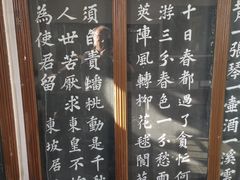 一張琴一
一溪雲
十日春都過了貪忙何
游三分春色一分愁雨
莢陣風轉柳花毬閬
須自責蟠桃動是千
人世苦厭求東皇不
為使君留 東坡居